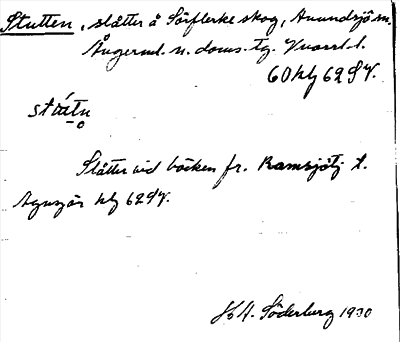 Stutten, slåtter å Sörflerke skog, Anundsjö sn.
Ångerml. n. doms. tg. Vuorrl.
60 hlg 62 SV.
Slåtter vid bäcken fr. Ramsjötj. t.
hlg 62 SV.
H. Söderberg 1930